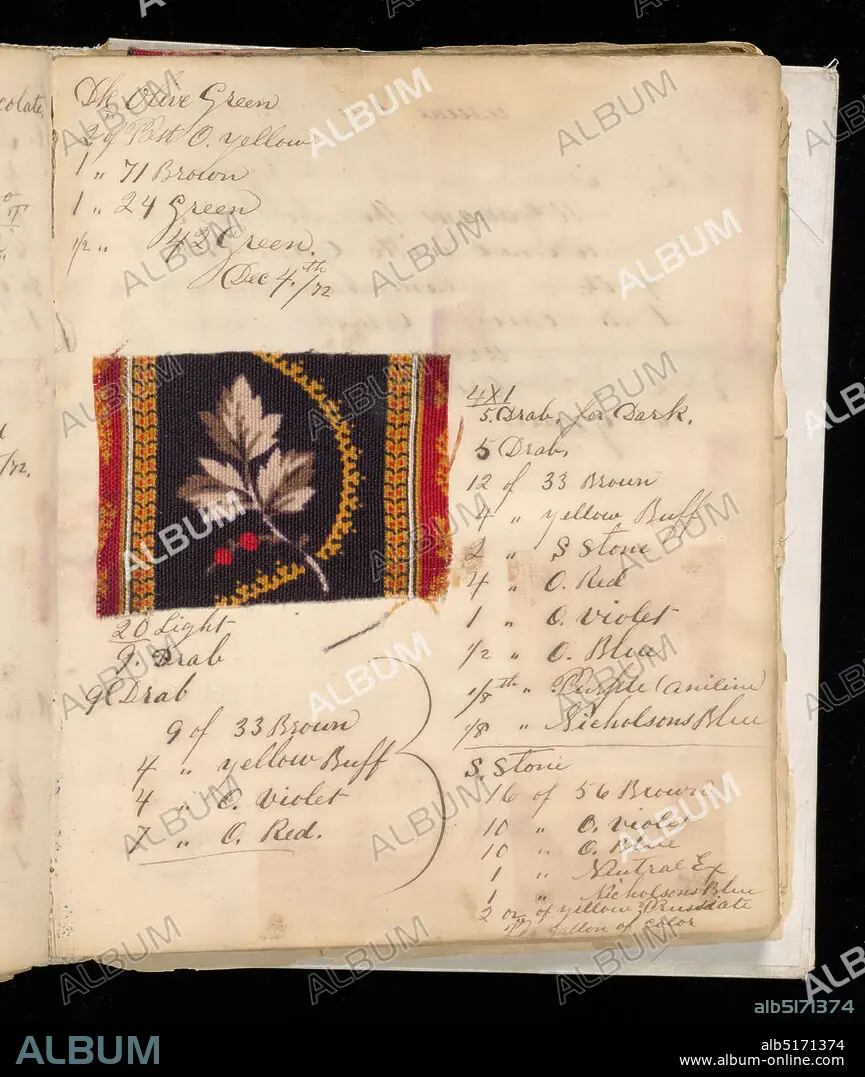 Dk Olive Green
2 of Past O. yellow
1 " 71 Brown
1 " 24 Green
1/2 " 42 Green.
Dec 4th/72
20 Light
9. Drab
9 Drab
9 of 33 Brown
4 " yellow Buff
4 " O. Violet
7 " O. Red.
4x1
5. Drab. for Dark.
5 Drab.
12 of 33 Brown
4 " yellow Buff
2 " S Stone
4 " O. Red
1 " O. Violet
1/2 " O. Blue
1/8th " Purple (aniline)
1/8 " Nicholsons Blue
S. Stone
16 of 56 Brown
10 " O. Violet
10 " O. Blue
1 " Neutral Ex
1 " Nicholsons Blue
2 oz of yellow Prussiate
gallon of color
colate
/72.
ALBUM
alb5171374
ALBUM
alb5171374
www.album-online.com